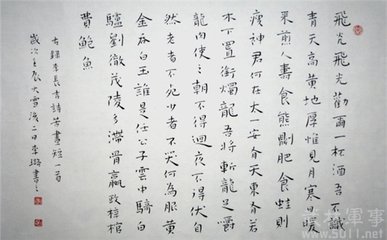 飛光飛光勸爾一杯酒吾不識
青天高黃地厚惟見月寒日暖
來煎人壽食熊則肥食蛙則
瘦神君何在太一安有天東有若
木下置銜燭龍吾將斬龍足嚼
龍肉使之朝不得迴夜不得伏自
然老者不死少者不哭何為服黃
金吞白玉誰是任公子雲中騎白
驢劉徹茂陵多滯骨嬴政梓棺
費鮑魚
右錄李長吉詩苦晝短一首
歲次壬辰大雪後二日李璐書之